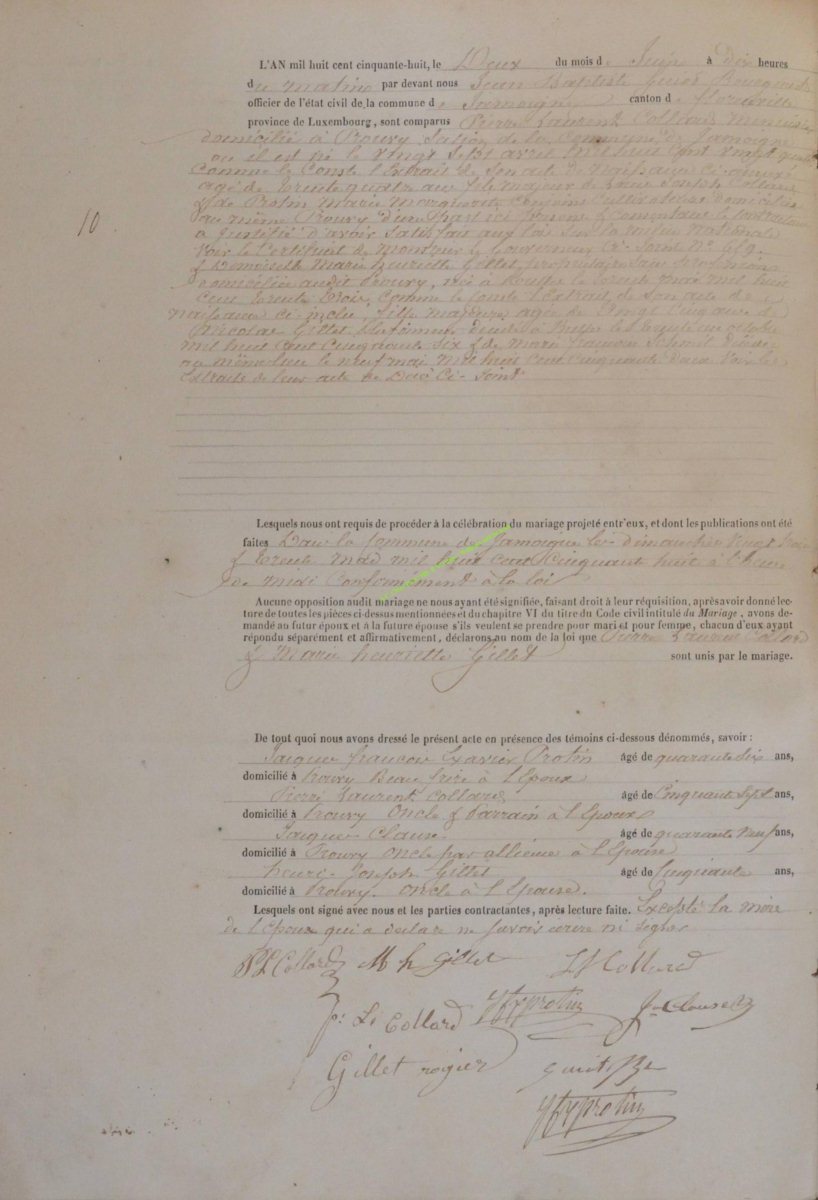 L'AN mil huit cent cinquante-huit, le Deux du mois de Juin à Dix heures
du matin par devant nous Jean Baptiste
officier de l'état civil de la commune de Jamoigne canton de florenville
province de Luxembourg, sont comparus Pierre Laurent Collard
domicilié à Prouvy Section de la Commune de Jamoigne
ou il est né le vingt Sept mil huit Cent vingt quatre
Comme le Conste l'Extrait de Son acte de Naissance Ci-annexé
agé de trente quatre ans fils majeur de Joseph Collard
& de Protin Marie Marguerite Cultivateurs domiciliés
au même Prouvy d'une Part ici présens & Consentans
a Justifié d'avoir Satisfait aux lois Sur la milice Nationale
Voir le Certificat de Monsieur le Gouverneur Ci-Joint N° 619
& Demoiselle Marie henriette Gillet, propriétaire Sans profession
domiciliée audit Prouvy, née à le trente mai mil huit
Cent trente trois, Comme le Conste l'Extrait de Son acte de
naissance Ci-inclu, fille majeure agée de Vingt Cinq ans de
Nicolas Gillet décédé à le trente un octobre
mil huit Cent Cinquante Six & de Marie françoise décédée
au même lieu le neuf mai mil huit Cent Cinquante deux Voir les
Extraits de leur acte de Décè Ci-Joint
10
Lesquels nous ont requis de procéder à la célébration du mariage projeté entr'eux, et dont les publications ont été
faites Dans la Commune de Jamoigne les dimanches Vingt trois
& trente mai mil huit Cent Cinquante huit à l'heure
de midi Conformément à la loi
Aucune opposition audit mariage ne nous ayant été signifiée, faisant droit à leur réquisition, après avoir donné lec-
ture de toutes les pièces ci-dessus mentionnées et du chapitre VI du titre du Code civil intitulé du Mariage, avons de-
mandé au futur époux et à la future épouse s'ils veulent se prendre pour mari et pour femme, chacun d'eux ayant
répondu séparément et affirmativement, déclarons au nom de la loi que Pierre Laurent Collard
& Marie henriette Gillet sont unis par le mariage.
De tout quoi nous avons dressé le présent acte en présence des témoins ci-dessous dénommés, savoir :
Jacque francois Exavier Protin âgé de quarante Six ans,
domicilié à Prouvy Beau frère à l'Epoux
Pierre Laurent Collard âgé de Cinquante Sept ans,
domicilié à Prouvy Oncle & Parrain à l'Epoux
Jacque Clause âgé de quarante neuf ans,
domicilié à Prouvy Oncle par allience à l'Epouse
henri Joseph Gillet âgé de Cinquante ans,
domicilié à Prouvy. Oncle à l'Epouse.
Lesquels ont signé avec nous et les parties contractantes, après lecture faite. Excepté la mère
de l'Epoux qui a déclaré ne Savoir écrire ni Signer
P L Collard M h Gillet Collard
P: L Collard Protin Clause
Gillet rogier
Protin